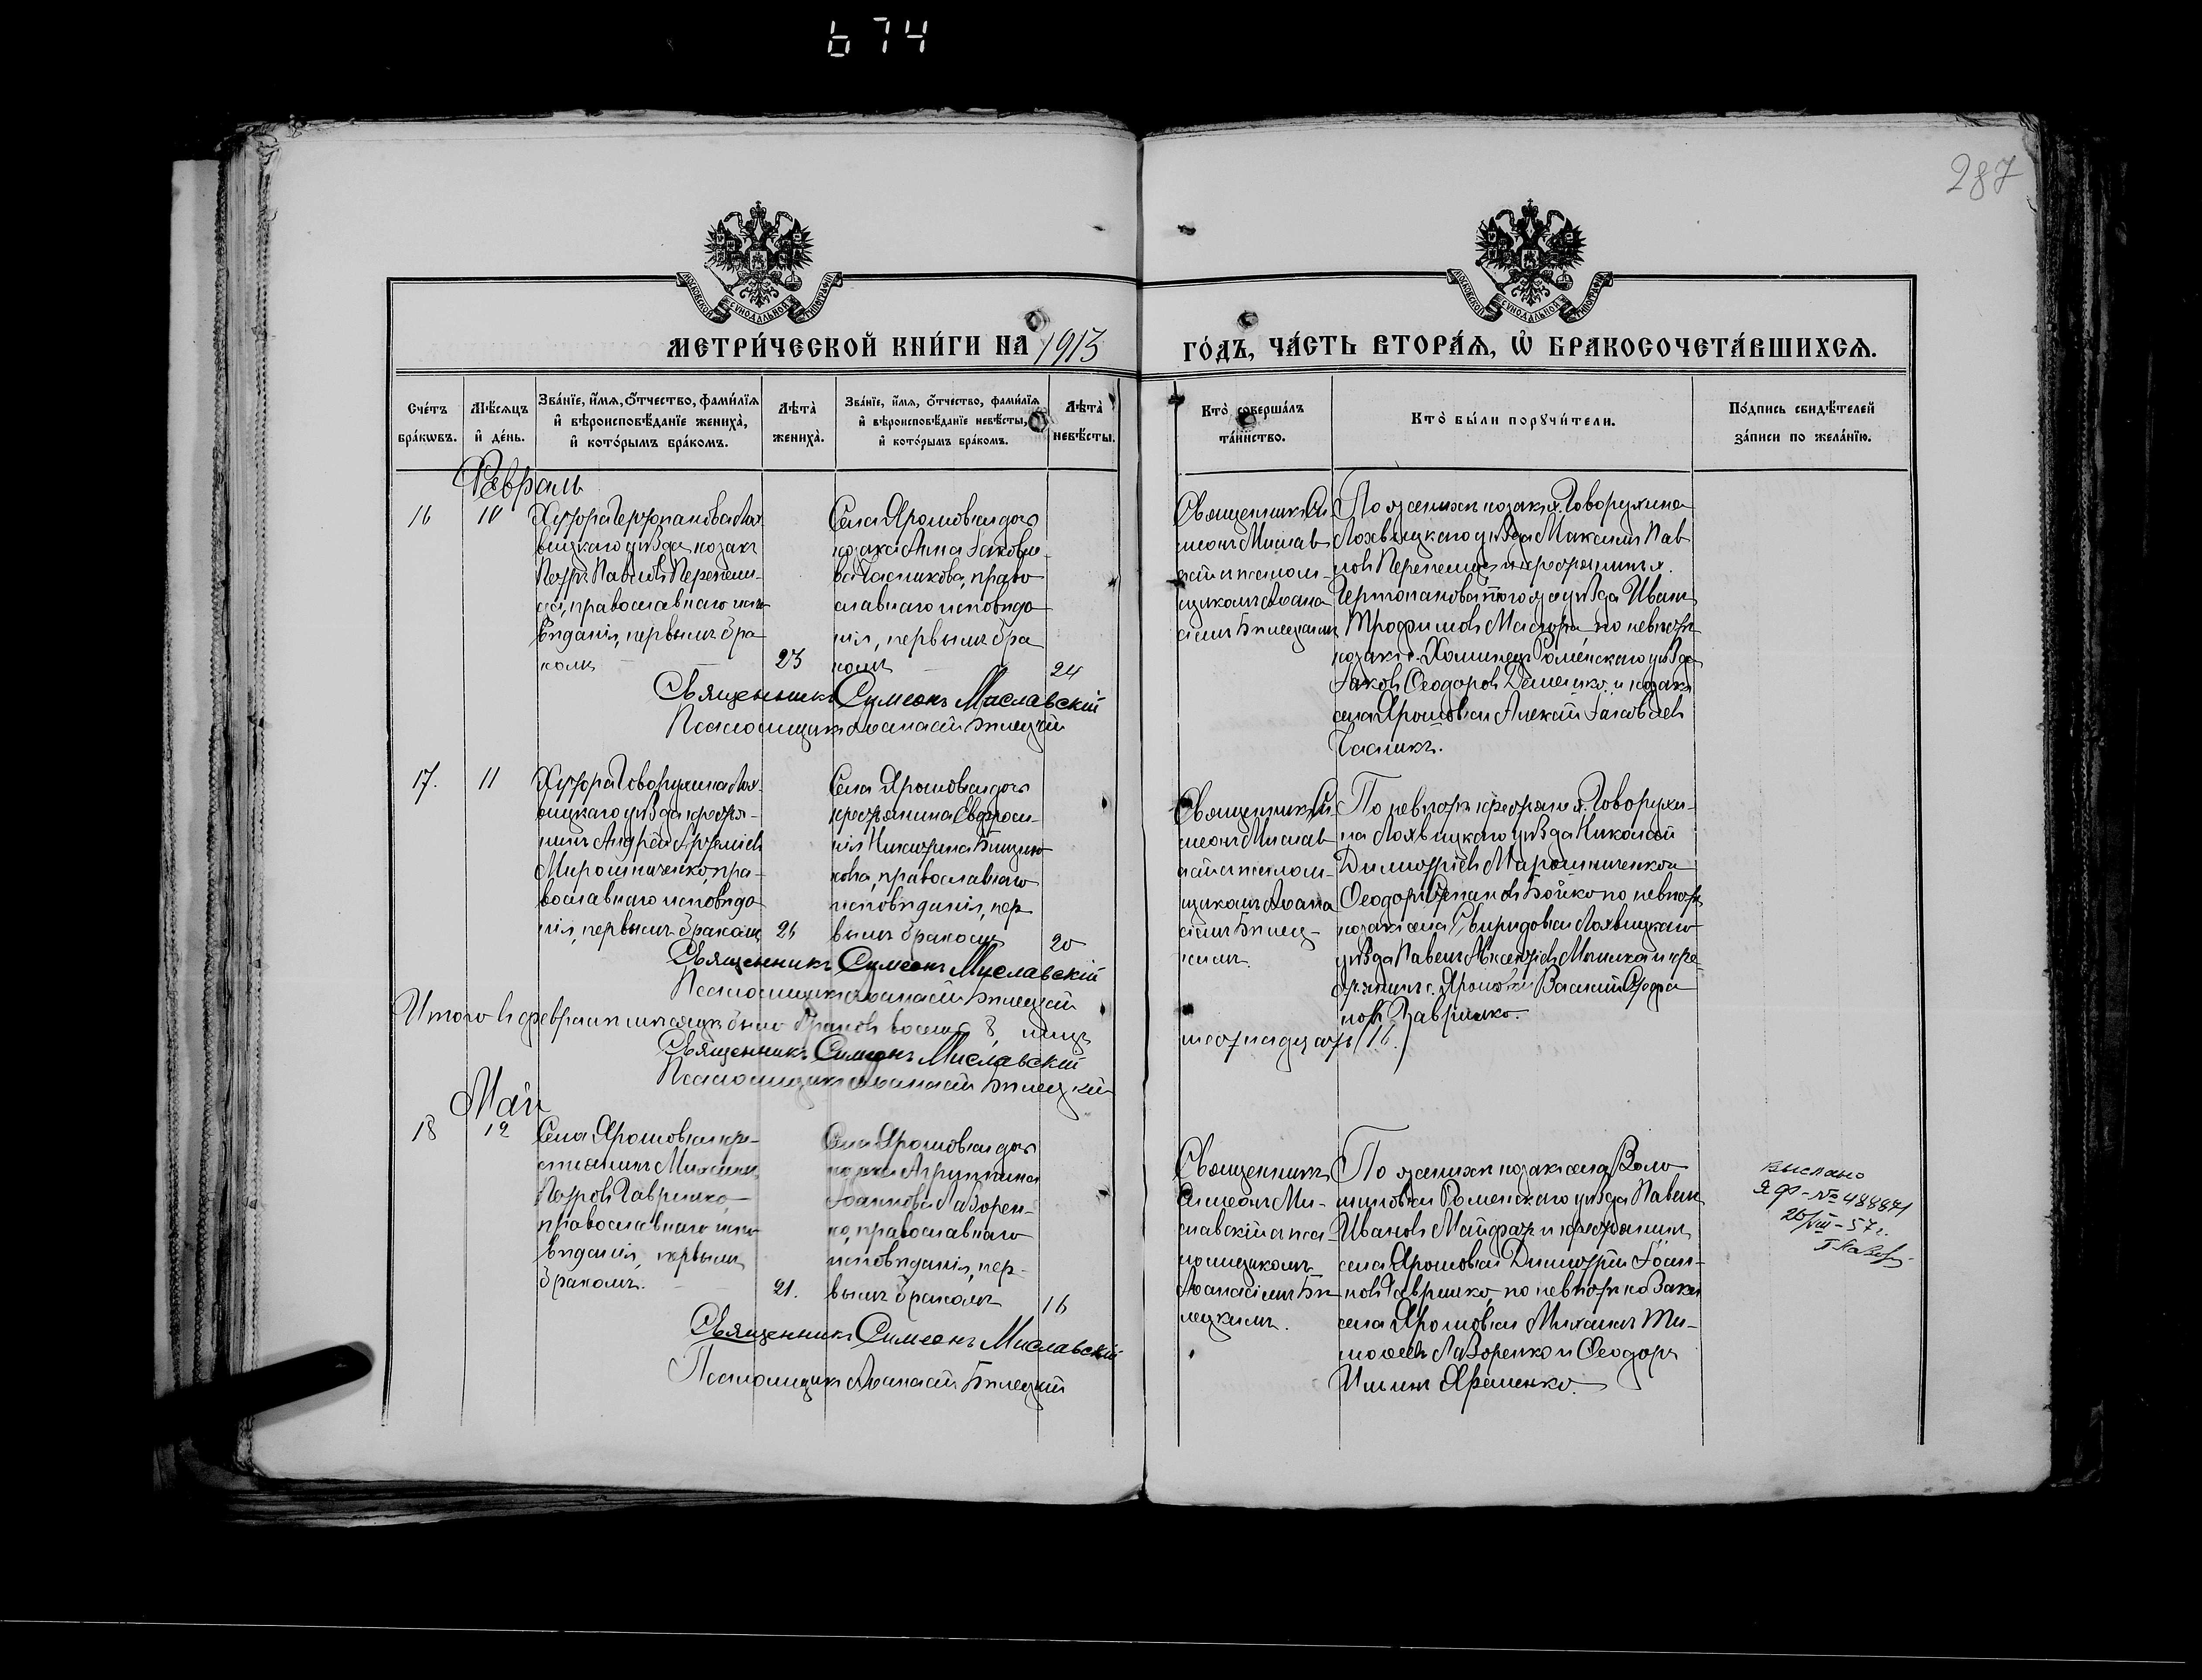 674
287
МОСКОВСКОЙ СѴНОДАЛЬНОЙ ТИПОГРАФІИ
МОСКОВСКОЙ СѴНОДАЛЬНОЙ ТИПОГРАФІИ
МЕТРИ́ЧЕСКОЙ КНИ́ГИ НА 1913
ГО́ДЪ, ЧА́СТЬ ВТОРА́Я, Ѡ҆ БРАКОСОЧЕТА́ВШИХСЯ.
Сче́тъ бра́кѡвъ.
Мѣ́сяцъ и҆ де́нь.
Зва́нїе, и҆́мя, ѻ҆́тчество, фами́лїя
и҆ вѣроисповѣ́данїе жениха̀,
и҆ кото́рымъ бра́комъ.
Лѣта̀ жениха̀.
Зва́нїе, и҆́мя, ѻ҆́тчество, фами́лїя
и҆ вѣроисповѣ́данїе невѣ́сты,
и҆ кото́рымъ бра́комъ.
Лѣта̀ невѣ́сты.
Кто̀ соверша́лъ та́инство.
Кто̀ бы́ли порꙋчи́тели.
По́дпись свидѣ́телей
за́писи по жела́нїю.
Февраль
16
10
Хутора Чертопановка Лох
вицкаго уѣзда козакъ
Петръ Павловъ Перепели-
ца, православнаго испо
вѣданія, первымъ бра
комъ
23
Села Ярошовки дочь
козака Анна Іаковле-
ва Часникова, право
славнаго исповѣда
нія, первымъ бра
комъ
24
Священникъ Си-
меонъ Мислав
скій съ псалом-
щикомъ Аѳана
сіемъ Бѣлецкимъ
По женихѣ козакъ х. Говорухина
Лохвицкаго уѣзда Максимъ Пав
ловъ Перепелица и крестьянинъ х.
Чертопановки того же уѣзда Иванъ
Трофимовъ, по невѣстѣ
козакъ с. Хоминецъ Роменскаго уѣзда
Іаковъ Ѳеодоровъ Демешко и козакъ
села Ярошовки Алексій Іаковлевъ
Часникъ.
Священникъ Симеонъ Миславскій
Псаломщикъ Аѳанасій Бѣлецкій
17.
11
Хутора Говорухина Лох-
вицкаго уѣзда крестья-
нинъ Андрей Артеміевъ
Мирошниченко, пра-
вославнаго исповѣда
нія, первымъ бракомъ
Села Ярошовки дочь
крестьянина Евфроси-
нія Никитина
православнаго
исповѣданія, пер
вымъ бракомъ
20
Священникъ Си-
меонъ Мислав
скій съ псалом-
щикомъ Аѳана
сіемъ Бѣлец-
кимъ.
По невѣстѣ крестьяне х. Говорухи-
на Лохвицкаго уѣзда Николай
Димитріевъ Мирошниченко и
Ѳеодоръ Степановъ Бойко по невѣстѣ
козакъ села Свиридовки Лохвицкаго
уѣзда Павелъ и кре-
стьянинъ с. Ярошовки Василій Стефа
новъ Гавришко.
Священникъ Симеонъ Миславскій
Псаломщикъ Аѳанасій Бѣлецкій
Итого въ февралѣ мѣсяцѣ было браковъ восемь 8, лицъ
шестнадцать (16.)
Священникъ Симеонъ Миславскій
Псаломщикъ Аѳанасій Бѣлецкій
Май
18
12
Села Ярошовки кре-
стьянинъ Михаилъ
Петровъ Гавришко,
православнаго испо
вѣданія, первымъ
бракомъ.
21.
Села Ярошовки дочь
козака Агрипина
Іоаннова Лазорен-
ко, православнаго
исповѣданія, пер-
вымъ бракомъ
16
Священникъ
Симеонъ Ми-
славскій съ пса-
ломщикомъ
Аѳанасіемъ Бѣ
лецкимъ.
По женихѣ козакъ села Воло
шиновки Роменскаго уѣзда Павелъ
Ивановъ и крестьянинъ
села Ярошовки Димитрій Іоан-
новъ Гавришко, по невѣстѣ козаки
села Ярошовки Михаилъ Ти-
моѳеевъ Лазоренко и Ѳеодоръ
Ильинъ Яременко.
выслано
ЯФ-№ 488871
26/VIII-57г.
Священникъ Симеонъ Миславскій
Псаломщикъ Аѳанасій Бѣлецкій